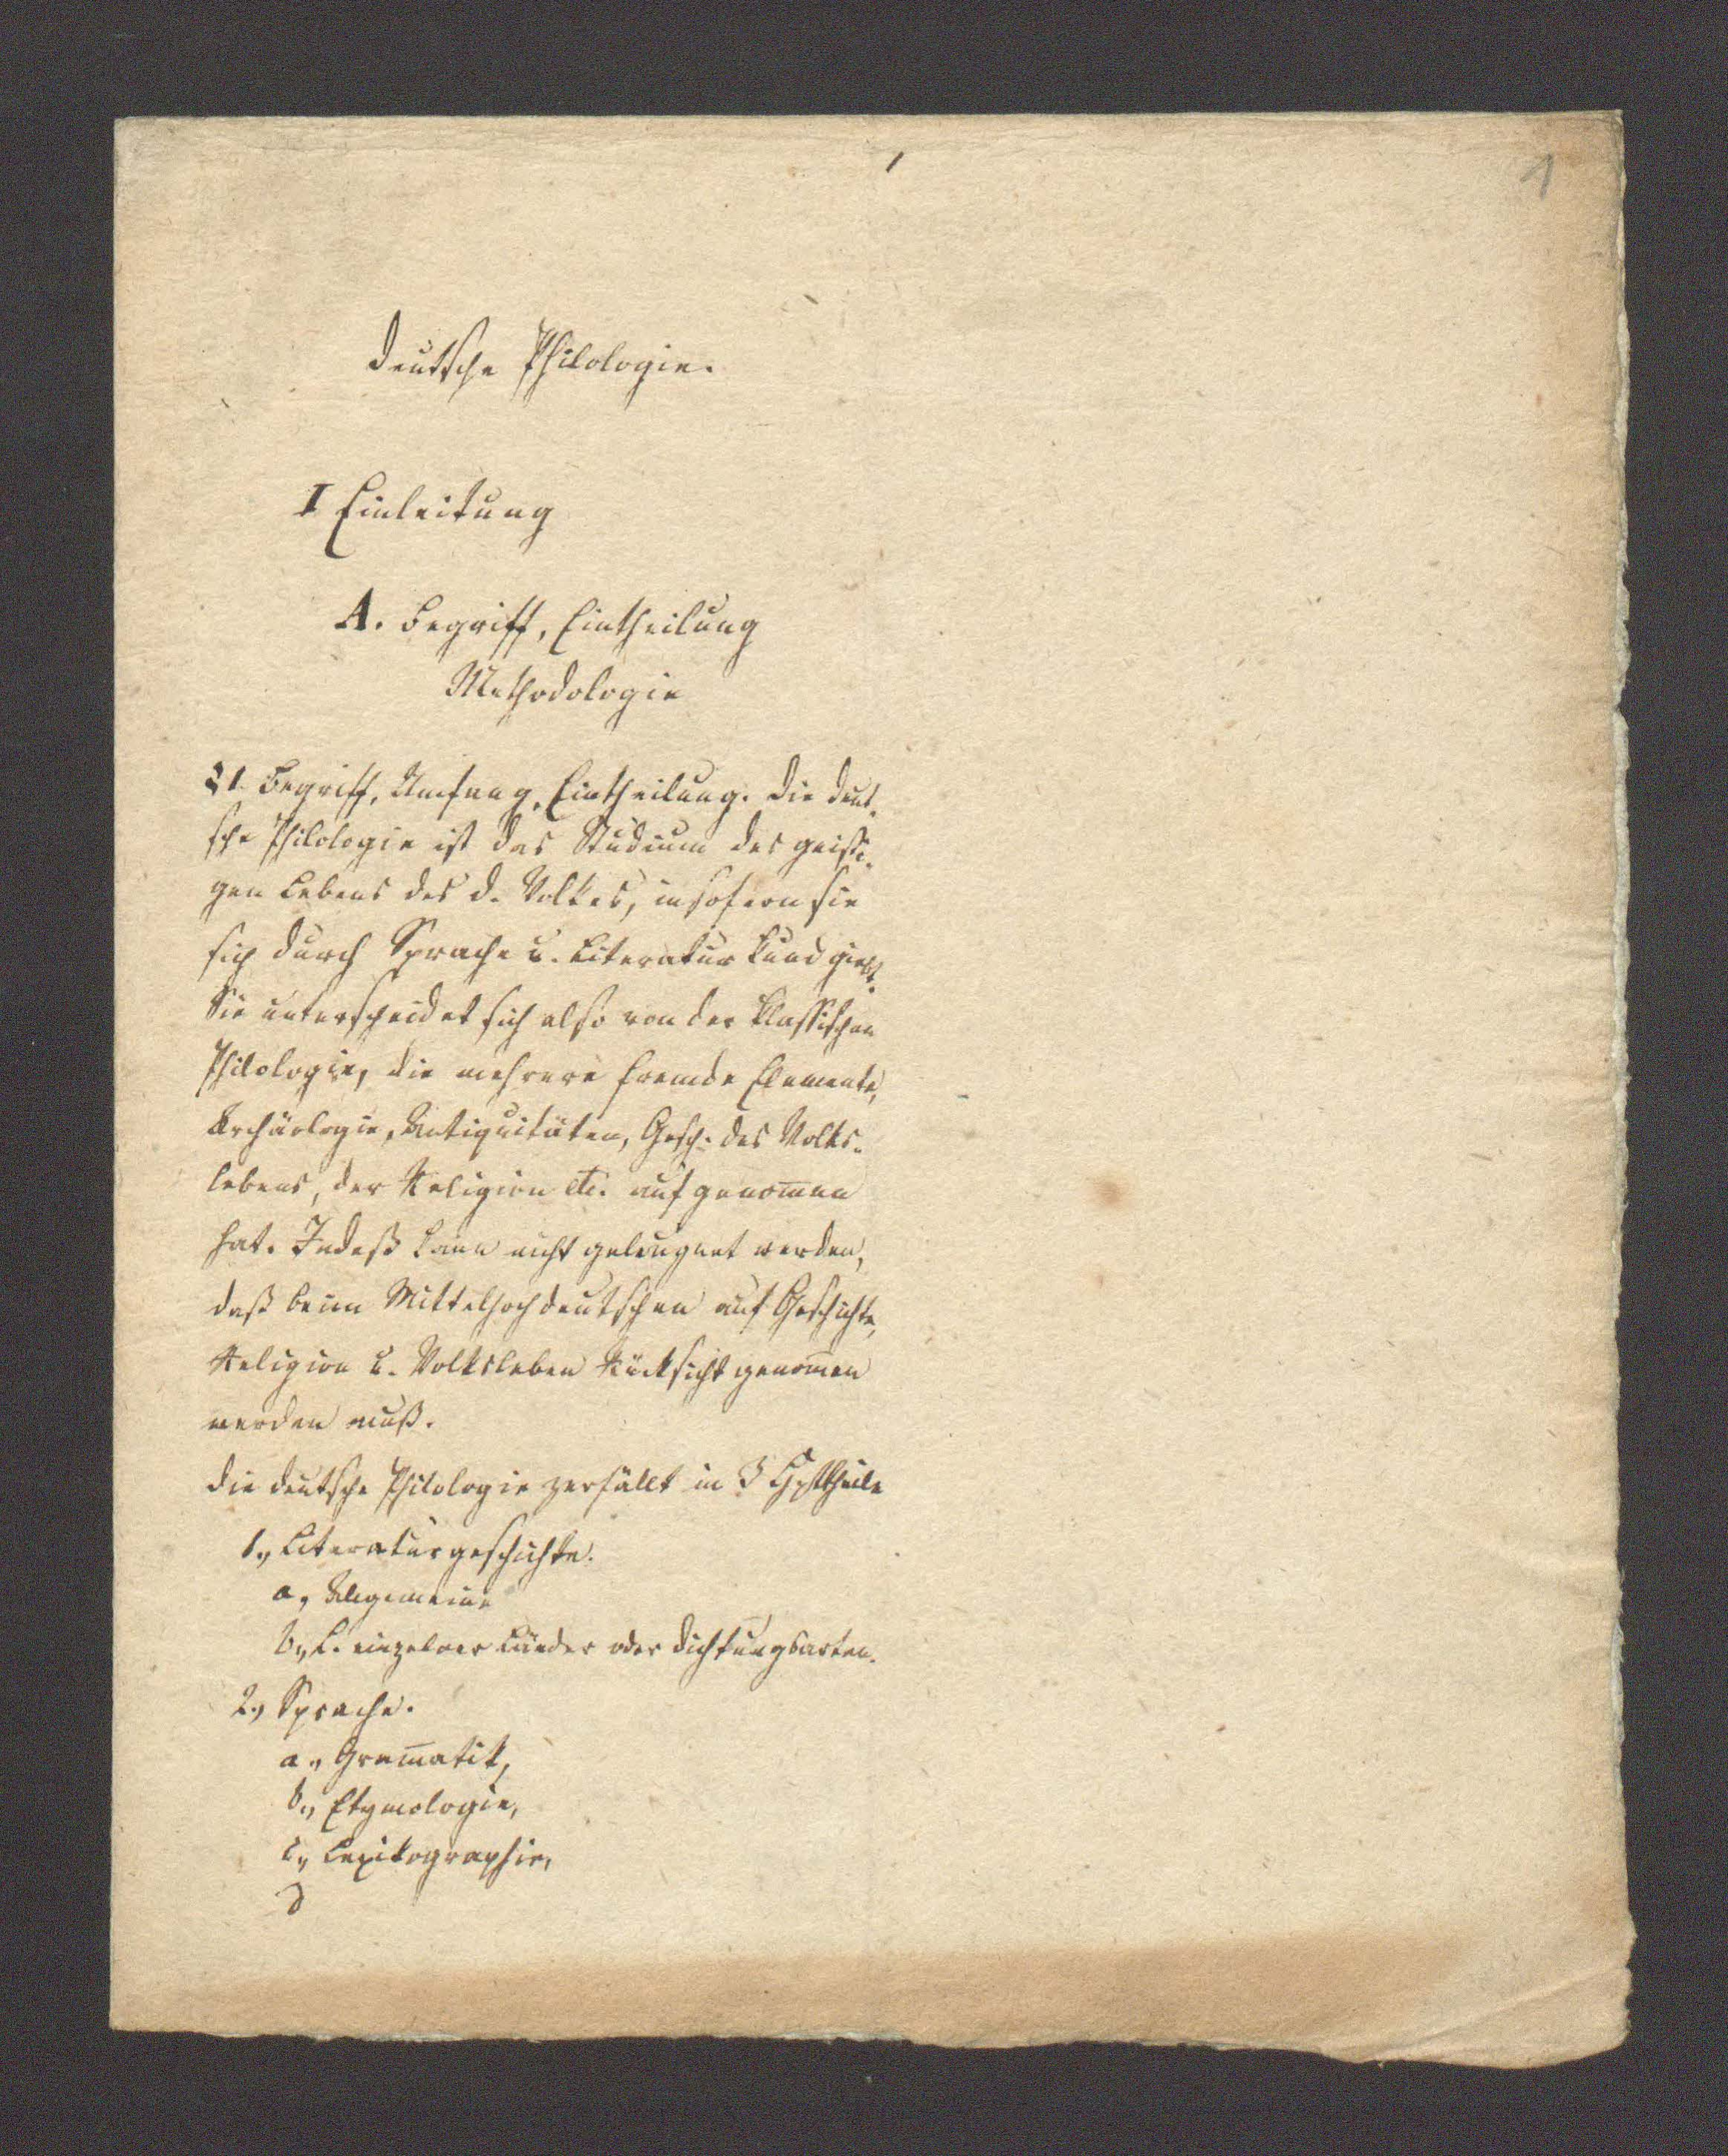 1
Deutsche Philologie.
I Einleitung
A. Begriff, Eintheilung
Methodologie
§ 1. Begriff, Umfang, Eintheilung. Die deut-
sche Philologie ist das Studium des geisti-
gen Lebens des d. Volkes, insofern sie
sich durch Sprache u. Literatur kund giebt.
Sie unterscheidet sich also von der klassischen
Philologie, die mehrere fremde Elemente,
Archäologie, Antiquitäten, Gesch. des Volks-
lebens, der Religion etc. aufgenom̄en
hat. Indeß kann nicht geleugnet werden,
daß beim Mittelhochdeutschen auf Geschichte,
Religion u. Volksleben Rücksicht genom̄en
werden muß.
Die deutsche Philologie zerfällt in 3 Hpttheile
1., Literaturgeschichte.
a, Allgemeine
b., L. einzelner Länder oder Dichtungsarten.
2., Sprache.
a., Gram̄atik,
b., Etymologie,
c., Lexikographie,
d